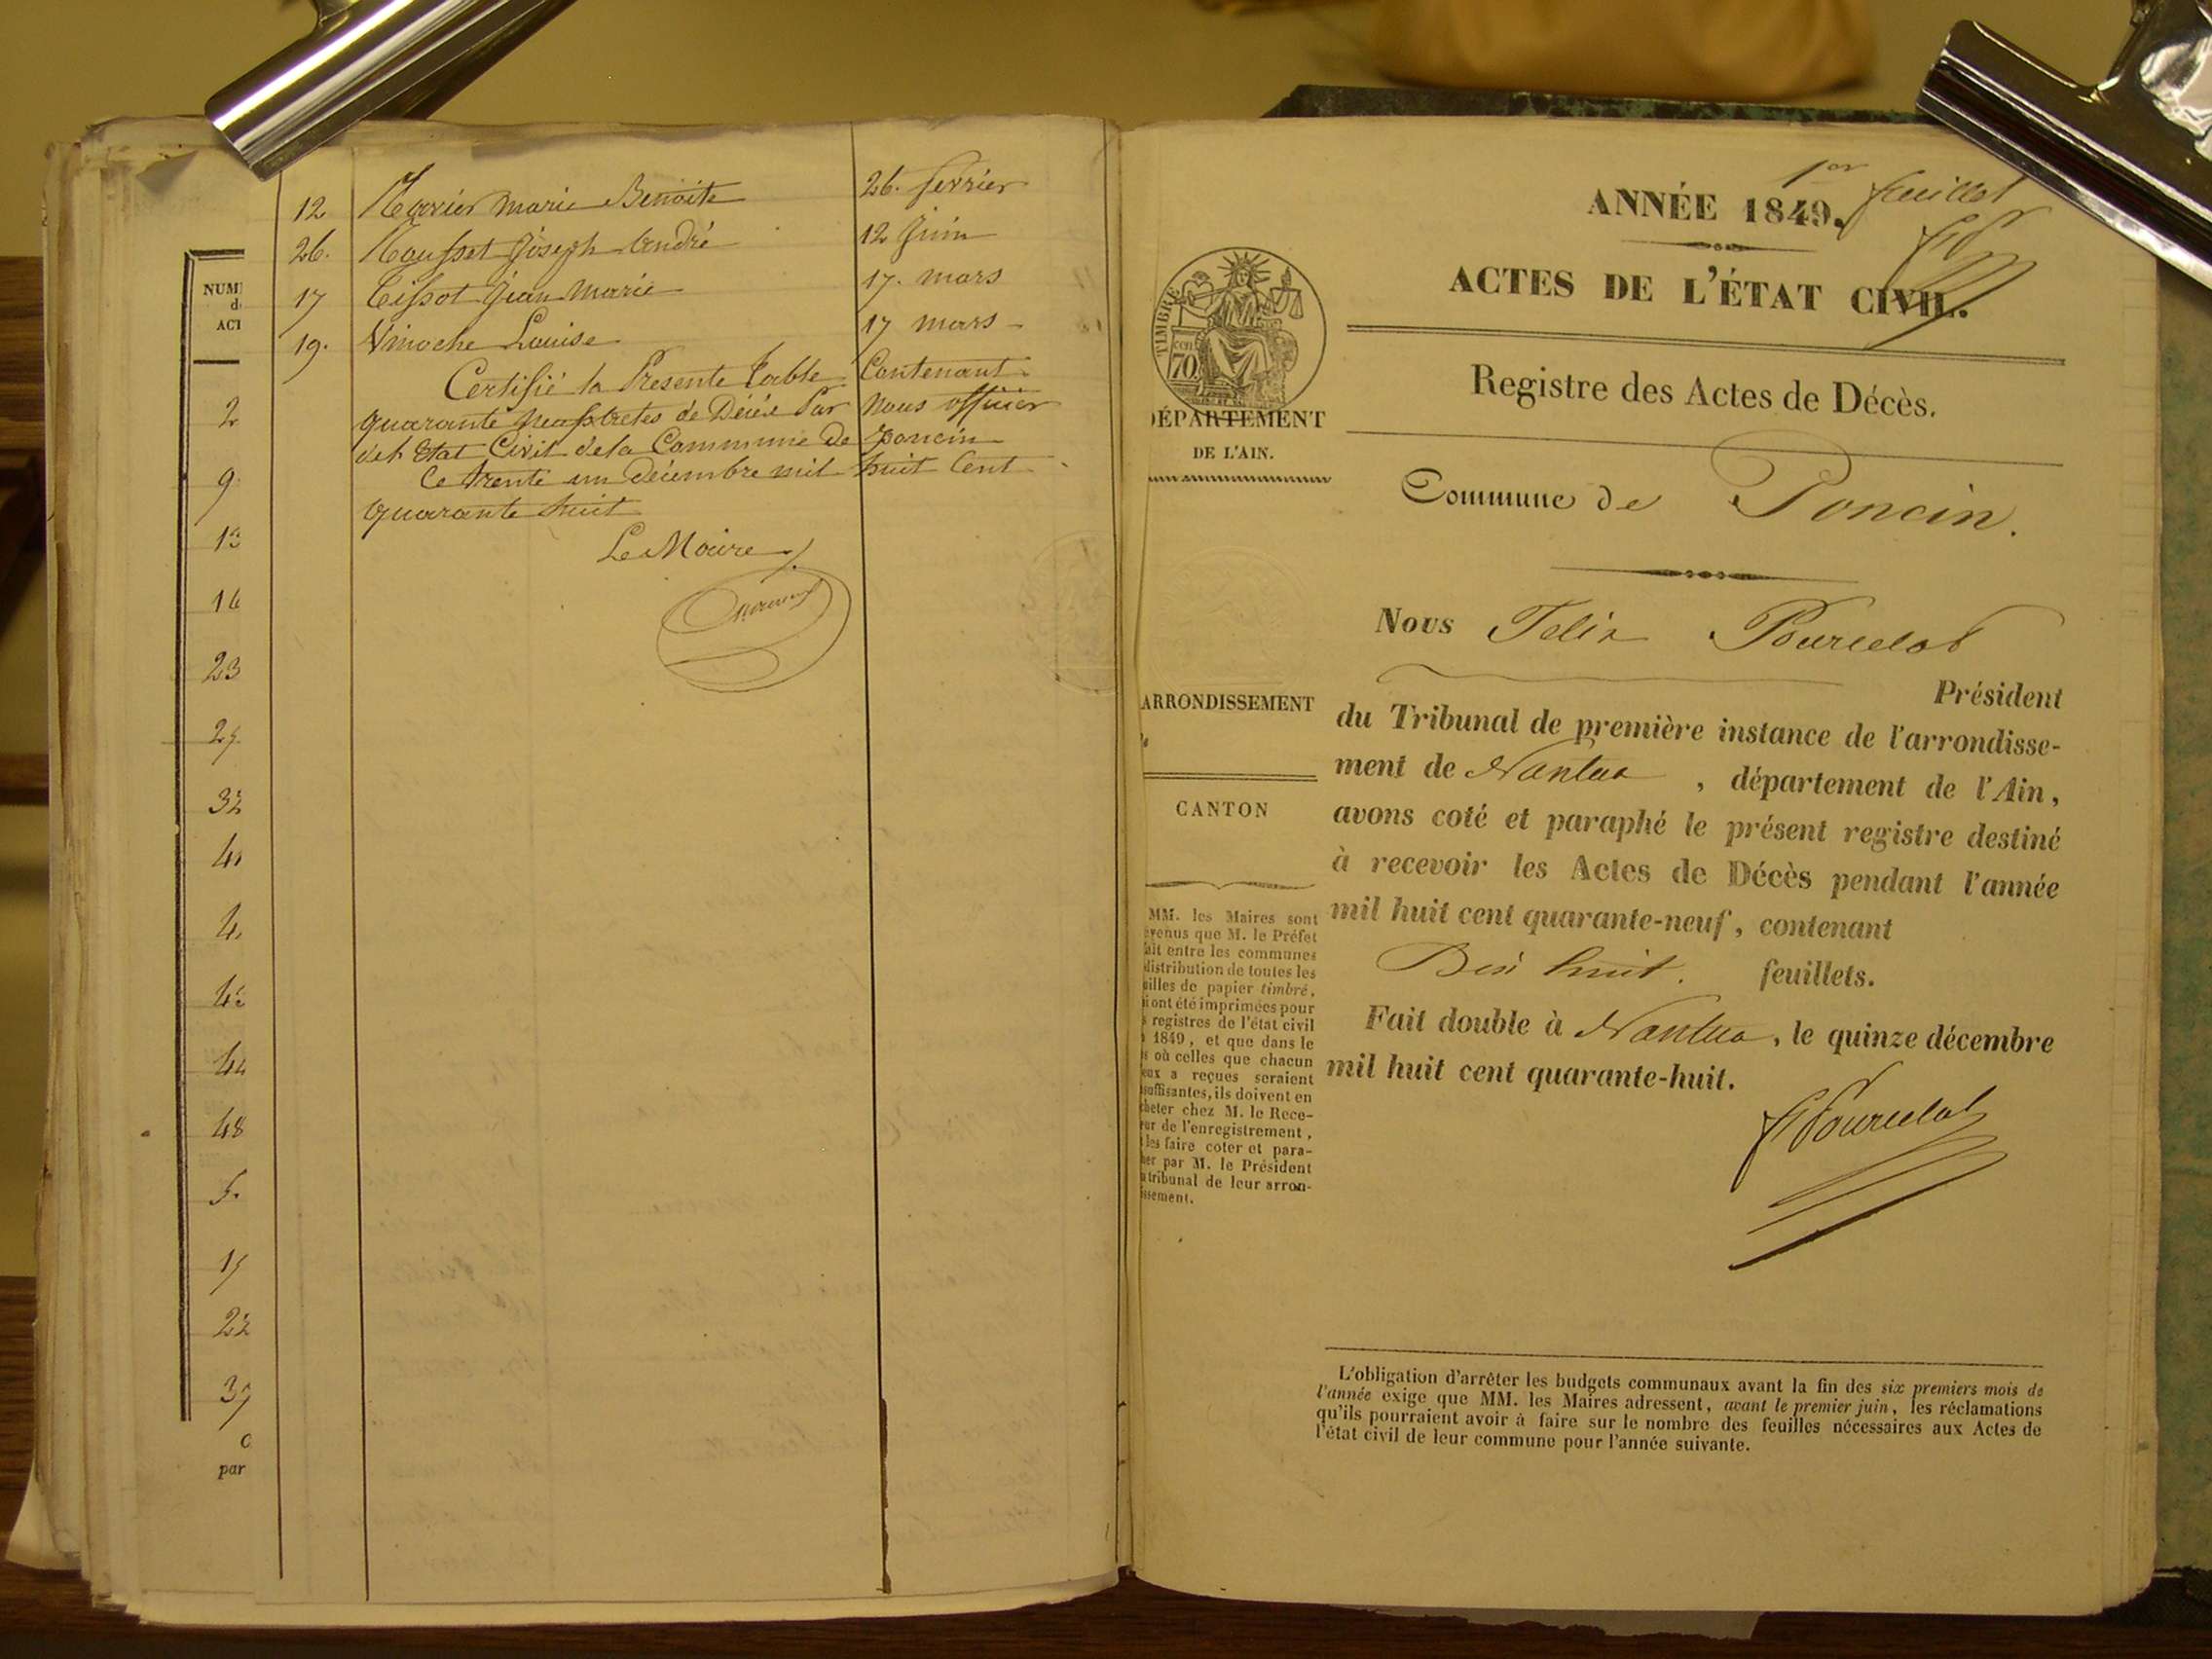 12 Tavier Marie Benoite 26. fevrier
26. Tousset Joseph André 12 Juin
17 Tissot Jean Marie 17. mars
19. Vinoche Louise 17 mars
Certifié la Presente Table Contenant
quarante neuf actes de Décés Par Nous officier
de l'Etat Civil de la Commune De Poncin
Ce trente un Décembre mil huit Cent
quarante huit
Le Maire
NUM
d
ACT
2
9
13
16
23
29
32
41
4
48
5
15
22
39
par
1er feuillet
ANNÉE 1849.
ACTES DE L'ÉTAT CIVIL.
Registre des Actes de Décès.
TIMBRE
70
DÉPARTEMENT
DE L'AIN.
Commune de Poncin.
Nous Felix Pourcelot
Président
du Tribunal de première instance de l'arrondisse-
ment de Nantua, département de l'Ain,
avons coté et paraphé le présent registre destiné
à recevoir les Actes de Décès pendant l'année
mil huit cent quarante-neuf, contenant
Dix huit. feuillets.
Fait double à Nantua, le quinze décembre
mil huit cent quarante-huit.
F Pourcelot
ARRONDISSEMENT
CANTON
MM. les Maires sont
évenus que M. le Préfet
fait entre les communes
distribution de toutes les
uilles de papier timbré,
i ont été imprimées pour
s registres de l'état civil
1849, et que dans le
s où celles que chacun
eux a reçues seraient
suffisantes, ils doivent en
cheter chez M. le Rece-
ur de l'enregistrement,
les faire coter et para-
her par M. le Président
u tribunal de leur arron-
issement.
L'obligation d'arrêter les budgets communaux avant la fin des six premiers mois de
l'année exige que MM. les Maires adressent, avant le premier juin, les réclamations
qu'ils pourraient avoir à faire sur le nombre des feuilles nécessaires aux Actes de
l'état civil de leur commune pour l'année suivante.